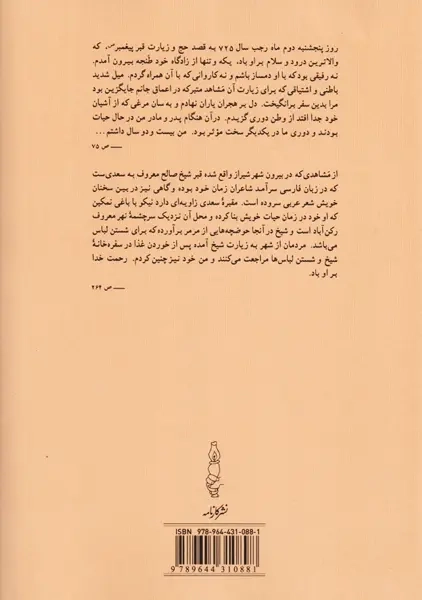 روز پنجشنبه دوم ماه رجب سال ۷۲۵ به قصد حج و زیارت قبر پیغمبر ص، که
والاترین درود و سلام بر او باد، یکه و تنها از زادگاه خود طنجه بیرون آمدم.
نه رفیقی بود که با او دمساز باشم و نه کاروانی که با آن همراه گردم. میل شدید
باطنی و اشتیاقی که برای زیارت آن مشاهد متبرکه در اعماق جانم جایگزین بود
مرا بدین سفر برانگیخت. دل بر هجران یاران نهادم و به سان مرغی که از آشیان
خود جدا افتد از وطن دوری گزیدم. در آن هنگام پدر و مادر من در حال حیات
بودند و دوری ما در یکدیگر سخت مؤثر بود. من بیست و دو سال داشتم...
ــــ ص ۷۵
از مشاهدی که در بیرون شهر شیراز واقع شده قبر شیخ صالح معروف به سعدی‌ست
که در زبان فارسی سرآمد شاعران زمان خود بوده و گاهی نیز در بین سخنان
خویش شعر عربی سروده است. مقبرهٔ سعدی زاویه‌ای دارد نیکو با باغی نمکین
که او خود در زمان حیات خویش بنا کرده و محل آن نزدیک سرچشمهٔ نهر معروف
رکن‌آباد است و شیخ در آنجا حوضچه‌هایی از مرمر برآورده که برای شستن لباس
می‌باشد. مردمان از شهر به زیارت شیخ آمده پس از خوردن غذا در سفره‌خانهٔ
شیخ و شستن لباس‌ها مراجعت می‌کنند و من خود نیز چنین کردم. رحمت خدا
بر او باد.
ــــ ص ۲۶۴
نشر کارنامه
ISBN 978-964-431-088-1
9 789644 310881